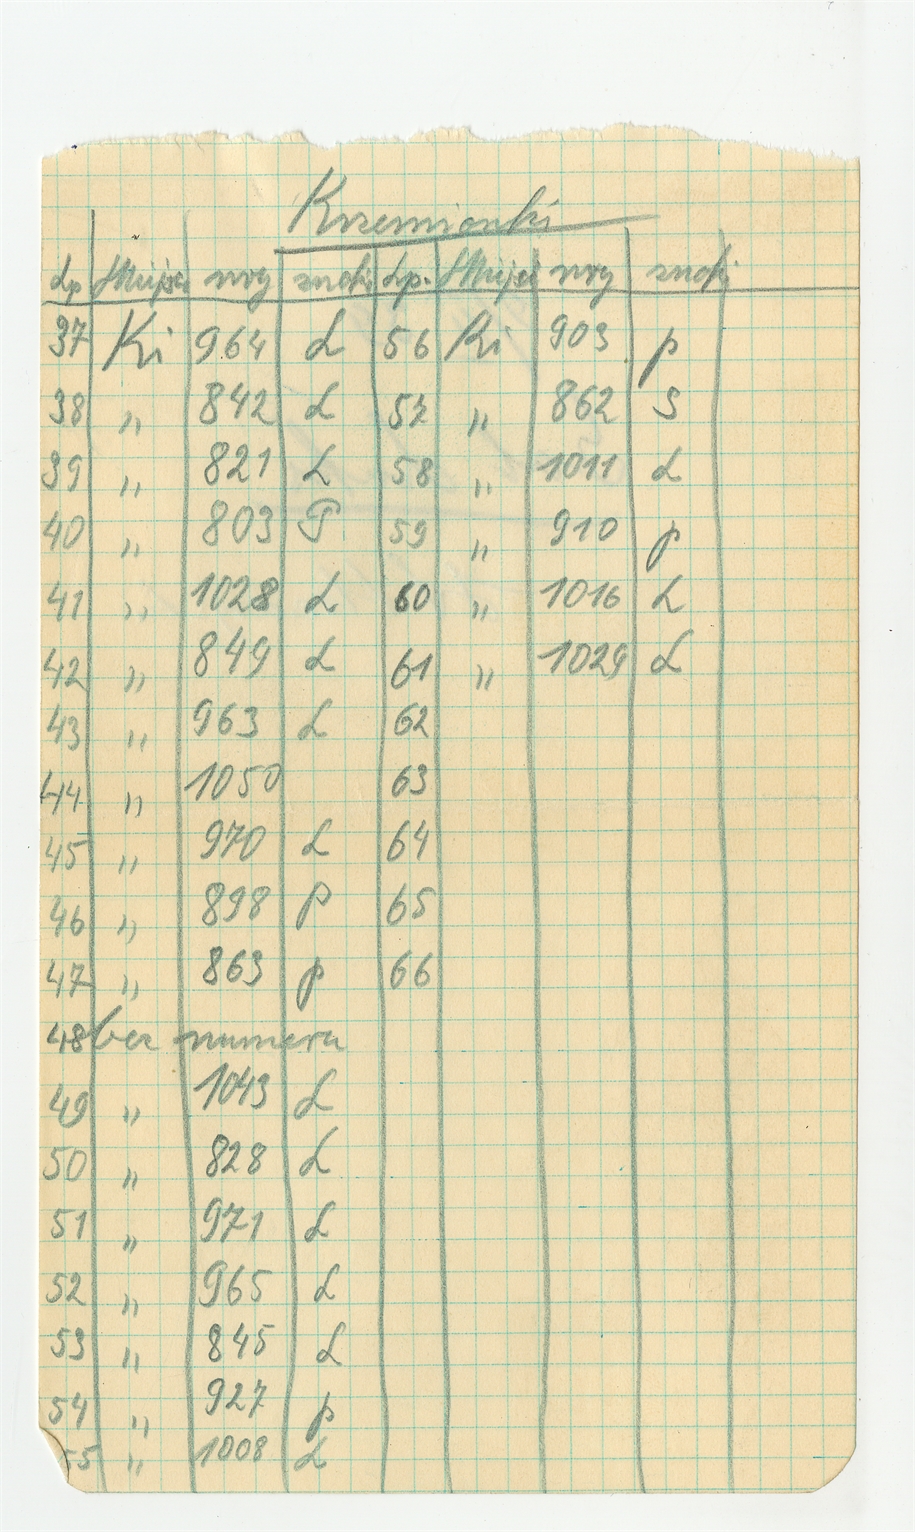 Krzemionki
Lp Miejsc nry znaki Lp. Miejsc nry znaki
37 Ki 964 L 56 Ki 903 p
38 „ 842 L 57 „ 862 S
39 „ 821 L 58 „ 1011 L
40 „ 803 P 59 „ 910 p
41 „ 1028 L 60 „ 1016 L
42 „ 849 L 61 „ 1029 L
43 „ 963 L 62
44 „ 1050 63
45 „ 970 L 64
46 „ 898 p 65
47 „ 863 p 66
48 bez numeru
49 „ 1043 L
50 „ 828 L
51 „ 971 L
52 „ 965 L
53 „ 845 L
54 „ 927 p
55 „ 1008 L